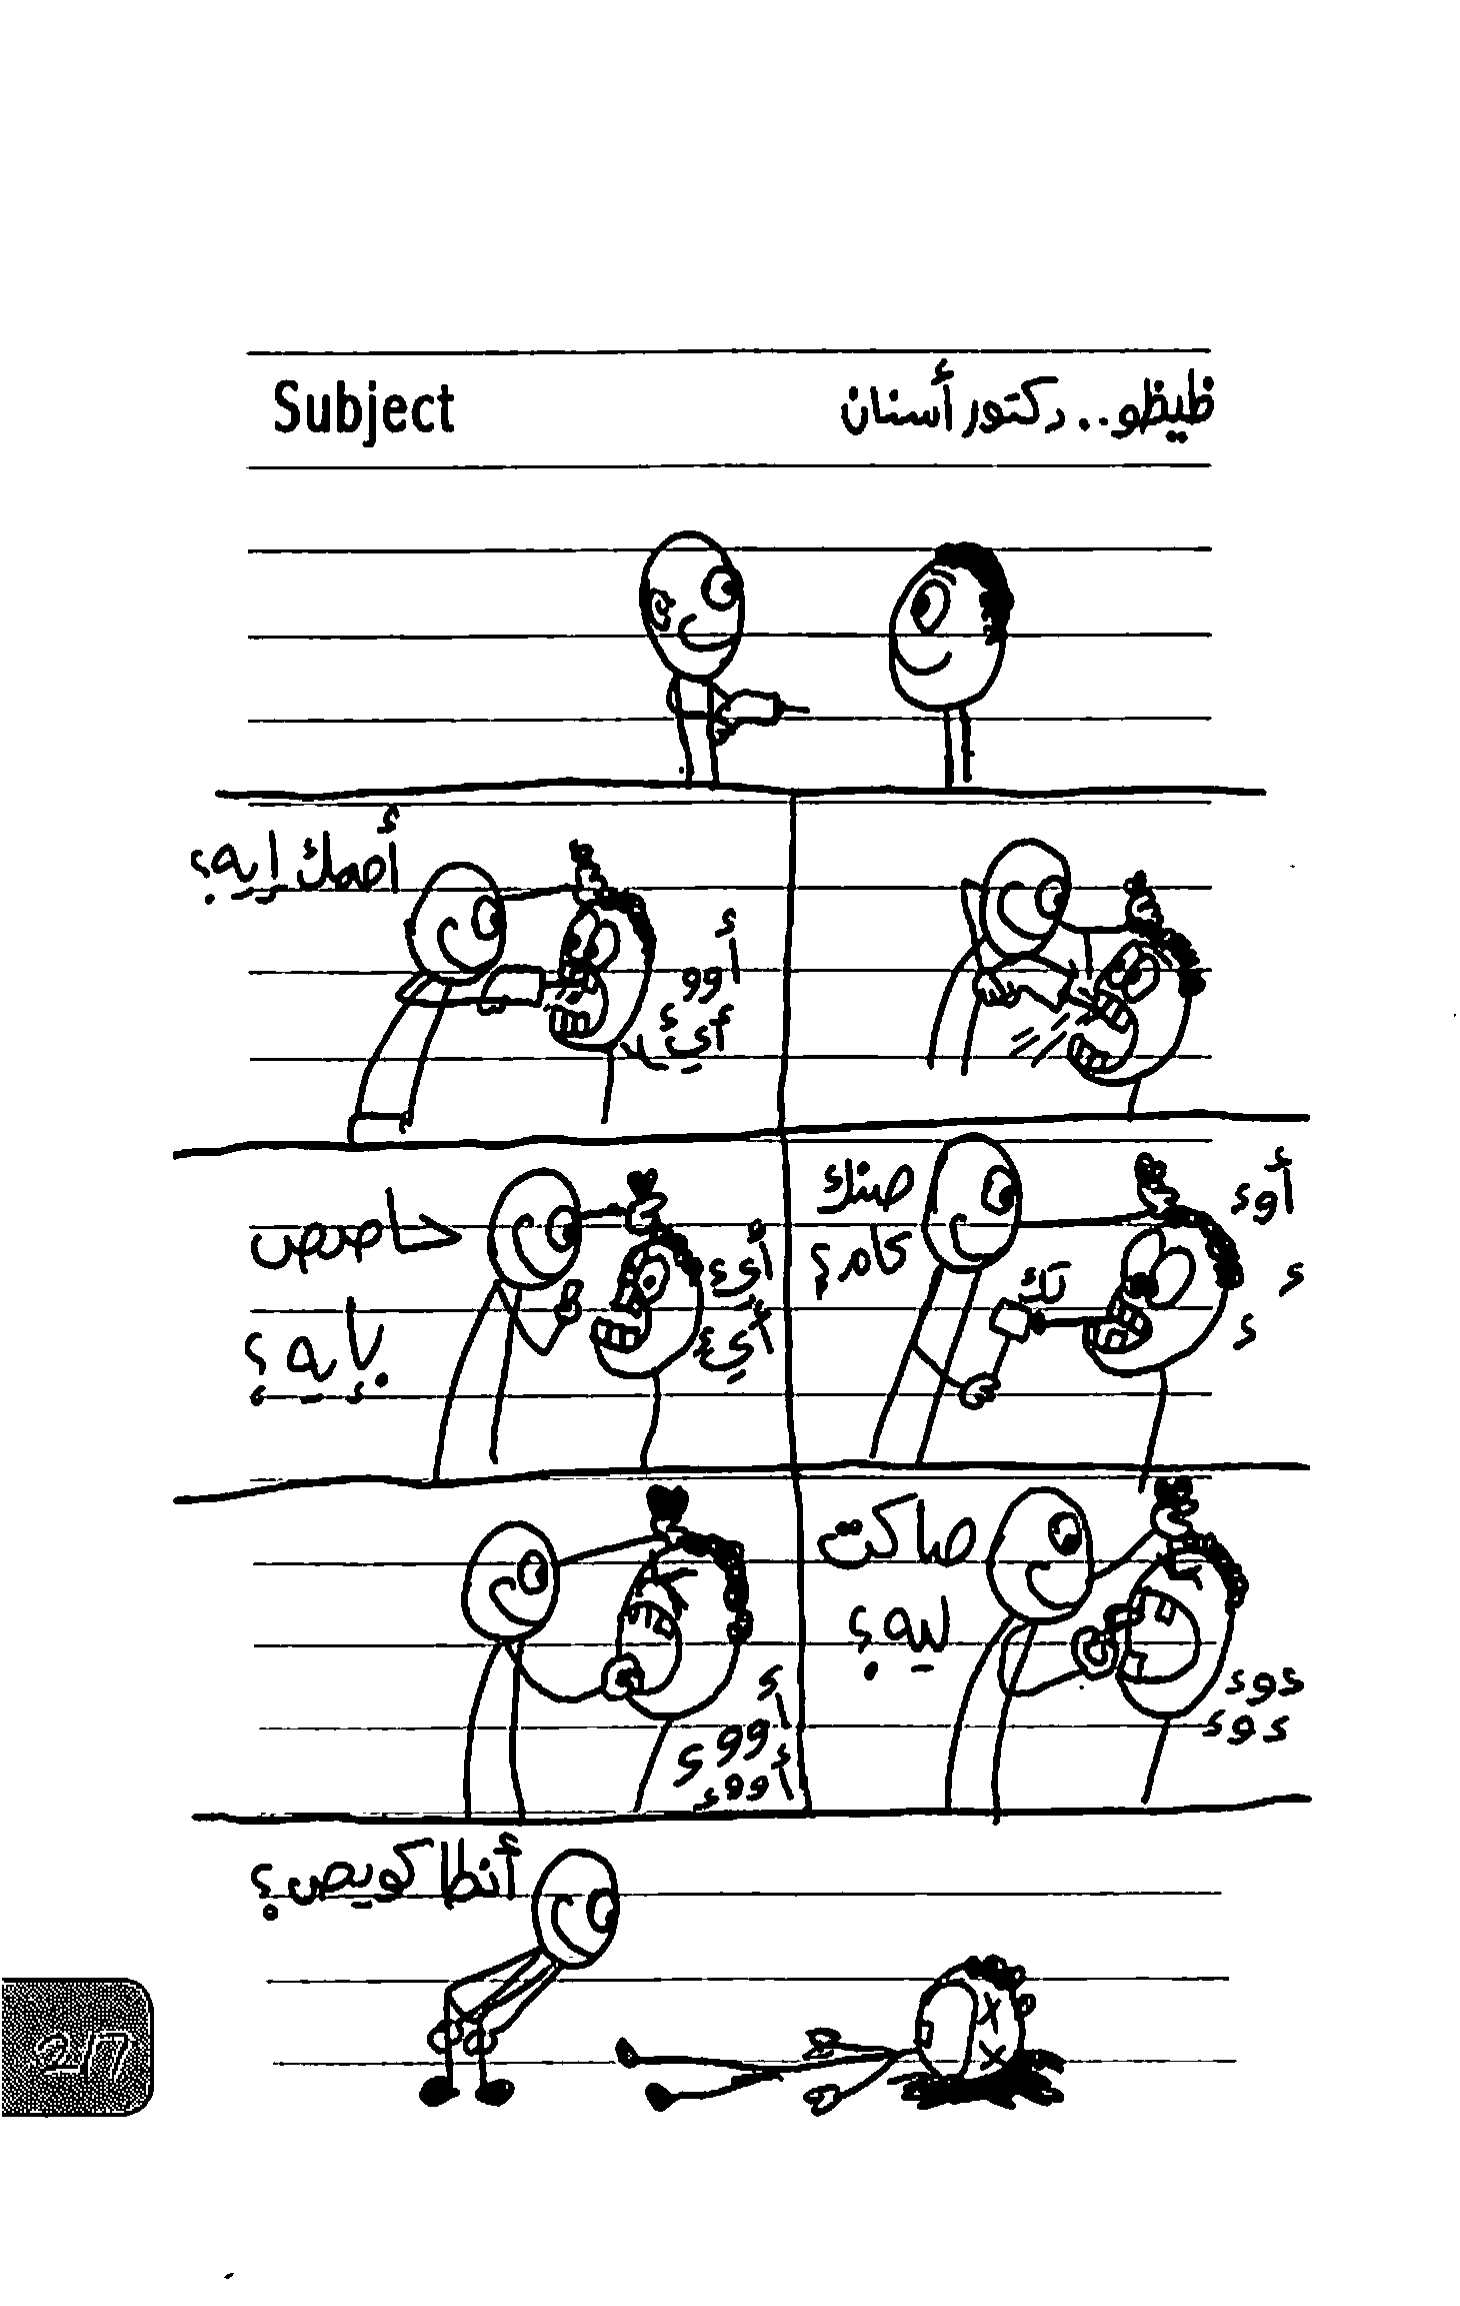 Subject
ظيظو.. دكتور أسنان
أصمك إيه؟
أووء
أيء لا
صنك
كام؟
تك
أوء
ء
ء
حاصص
بإيه؟
أيء
أيء
صاكت
ليه؟
ءوء
ءوء
أووء
أووء
أنطا كويص؟
217